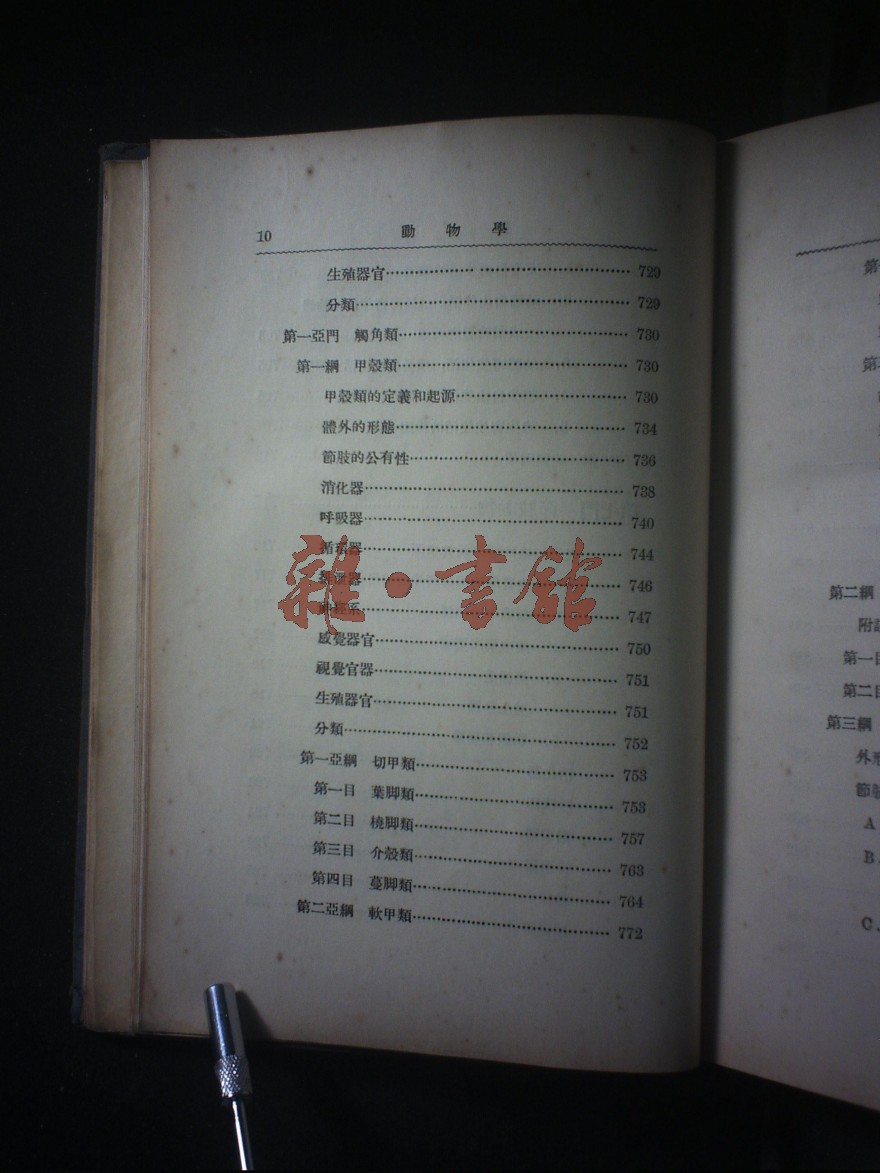 10 動物學
生殖器官 729
分類 729
第一亞門 觸角類 730
第一綱 甲殼類 730
甲殼類的定義和起源 730
體外的形態 734
節肢的公有性 736
消化器 738
呼吸器 740
循環器 744
器 746
神經系 747
感覺器官 750
視覺官器 751
生殖器官 751
分類 752
第一亞綱 切甲類 753
第一目 葉脚類 753
第二目 橈脚類 757
第三目 介殼類 763
第四目 蔓脚類 764
第二亞綱 軟甲類 772
雜·書館
第二綱
第一
第二
第三綱
外
節
A
B.
C.